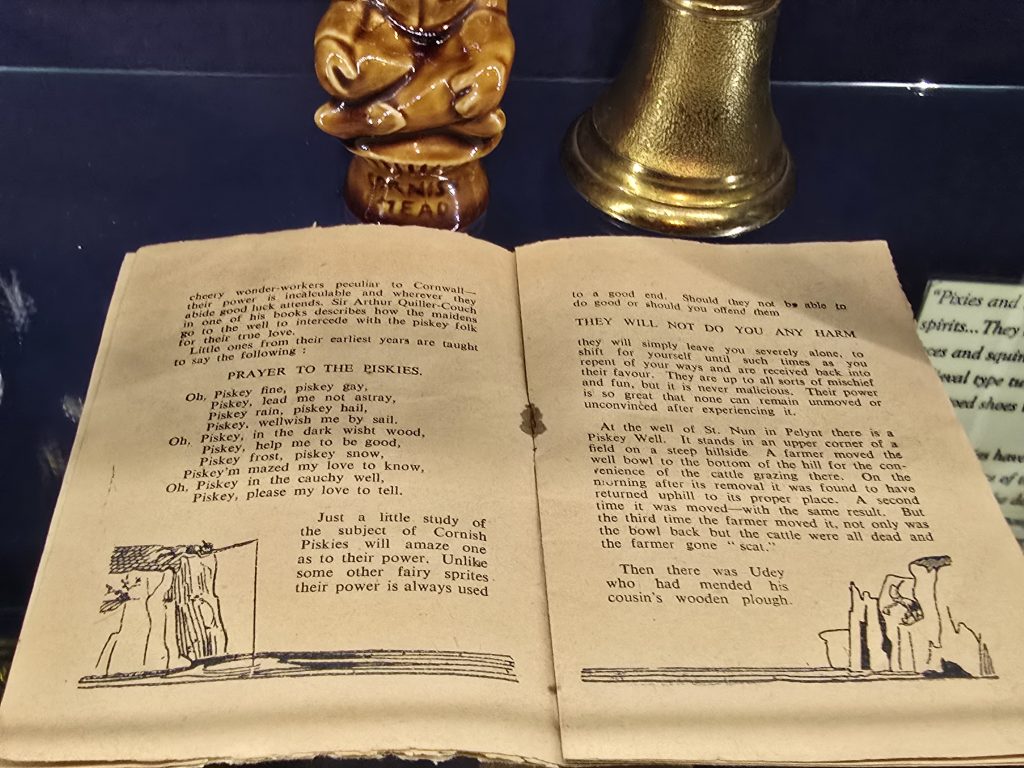 CORNISH
MEAD
cheery wonder-workers peculiar to Cornwall—
their power is incalculable and wherever they
abide good luck attends. Sir Arthur Quiller-Couch
in one of his books describes how the maidens
go to the well to intercede with the piskey folk
for their true love.
Little ones from their earliest years are taught
to say the following :
PRAYER TO THE PISKIES.
Oh, Piskey fine, piskey gay,
Piskey, lead me not astray,
Piskey rain, piskey hail,
Piskey, wellwish me by sail.
Oh, Piskey, in the dark wisht wood,
Piskey, help me to be good,
Piskey frost, piskey snow,
Piskey'm mazed my love to know,
Oh, Piskey in the cauchy well,
Piskey, please my love to tell.
Just a little study of
the subject of Cornish
Piskies will amaze one
as to their power. Unlike
some other fairy sprites
their power is always used
to a good end. Should they not be able to
do good or should you offend them
THEY WILL NOT DO YOU ANY HARM
they will simply leave you severely alone, to
shift for yourself until such times as you
repent of your ways and are received back into
their favour. They are up to all sorts of mischief
and fun, but it is never malicious. Their power
is so great that none can remain unmoved or
unconvinced after experiencing it.
At the well of St. Nun in Pelynt there is a
Piskey Well. It stands in an upper corner of a
field on a steep hillside. A farmer moved the
well bowl to the bottom of the hill for the con-
venience of the cattle grazing there. On the
morning after its removal it was found to have
returned uphill to its proper place. A second
time it was moved—with the same result. But
the third time the farmer moved it, not only was
the bowl back but the cattle were all dead and
the farmer gone " scat."
Then there was Udey
who had mended his
cousin's wooden plough.
"Pixies and
spirits... They
and squin
type
shoes
have
of